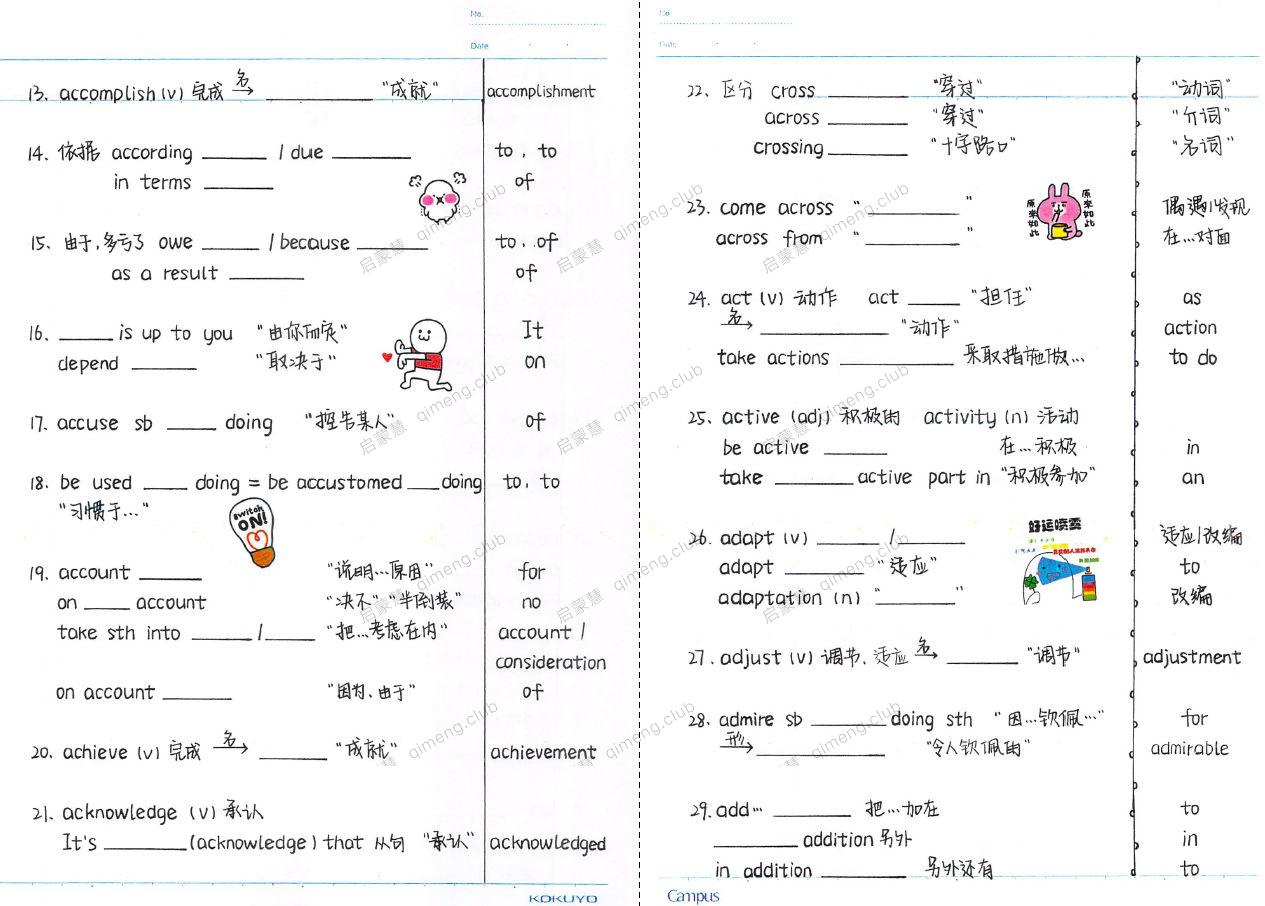 No.
Date
13. accomplish (v) 完成 名→ ________ "成就" accomplishment
14. 依据 according ______ / due ______ to, to
in terms ______ of
15. 由于,多亏了 owe ______ / because ______ to, of
as a result ______ of
16. ______ is up to you "由你而定" It
depend ______ "取决于" on
17. accuse sb ______ doing "控告某人" of
18. be used ____ doing = be accustomed ___ doing to, to
"习惯于…"
switch
ON!
19. account ______ "说明…原因" for
on ____ account "决不" "半倒装" no
take sth into ______ / ______ "把…考虑在内" account /
consideration
on account ______ "因为、由于" of
20. achieve (v) 完成 名→ ______ "成就" achievement
21. acknowledge (v) 承认
It's ________ (acknowledge) that 从句 "承认" acknowledged
KOKUYO
No
Date
22. 区分 cross ________ "穿过" "动词"
across ________ "穿过" "介词"
crossing ________ "十字路口" "名词"
23. come across "________" 偶遇/发现
across from "________" 在…对面
原来如此 原来如此
24. act (v) 动作 act ______ "担任" as
名→ ________ "动作" action
take actions ________ 采取措施做… to do
25. active (adj) 积极的 activity (n) 活动
be active ______ 在…积极 in
take ________ active part in "积极参加" an
好运喷雾
26. adapt (v) ______ / ______ 适应/改编
adapt ________ "适应" to
adaptation (n) "________" 改编
27. adjust (v) 调节、适应 名→ ______ "调节" adjustment
28. admire sb ______ doing sth "因…钦佩…" for
形→ ________ "令人钦佩的" admirable
29. add… ________ 把…加在 to
________ addition 另外 in
in addition ________ 另外还有 to
Campus
启蒙慧 qimeng.club